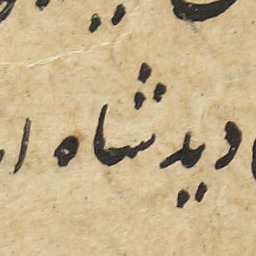 دید شاه